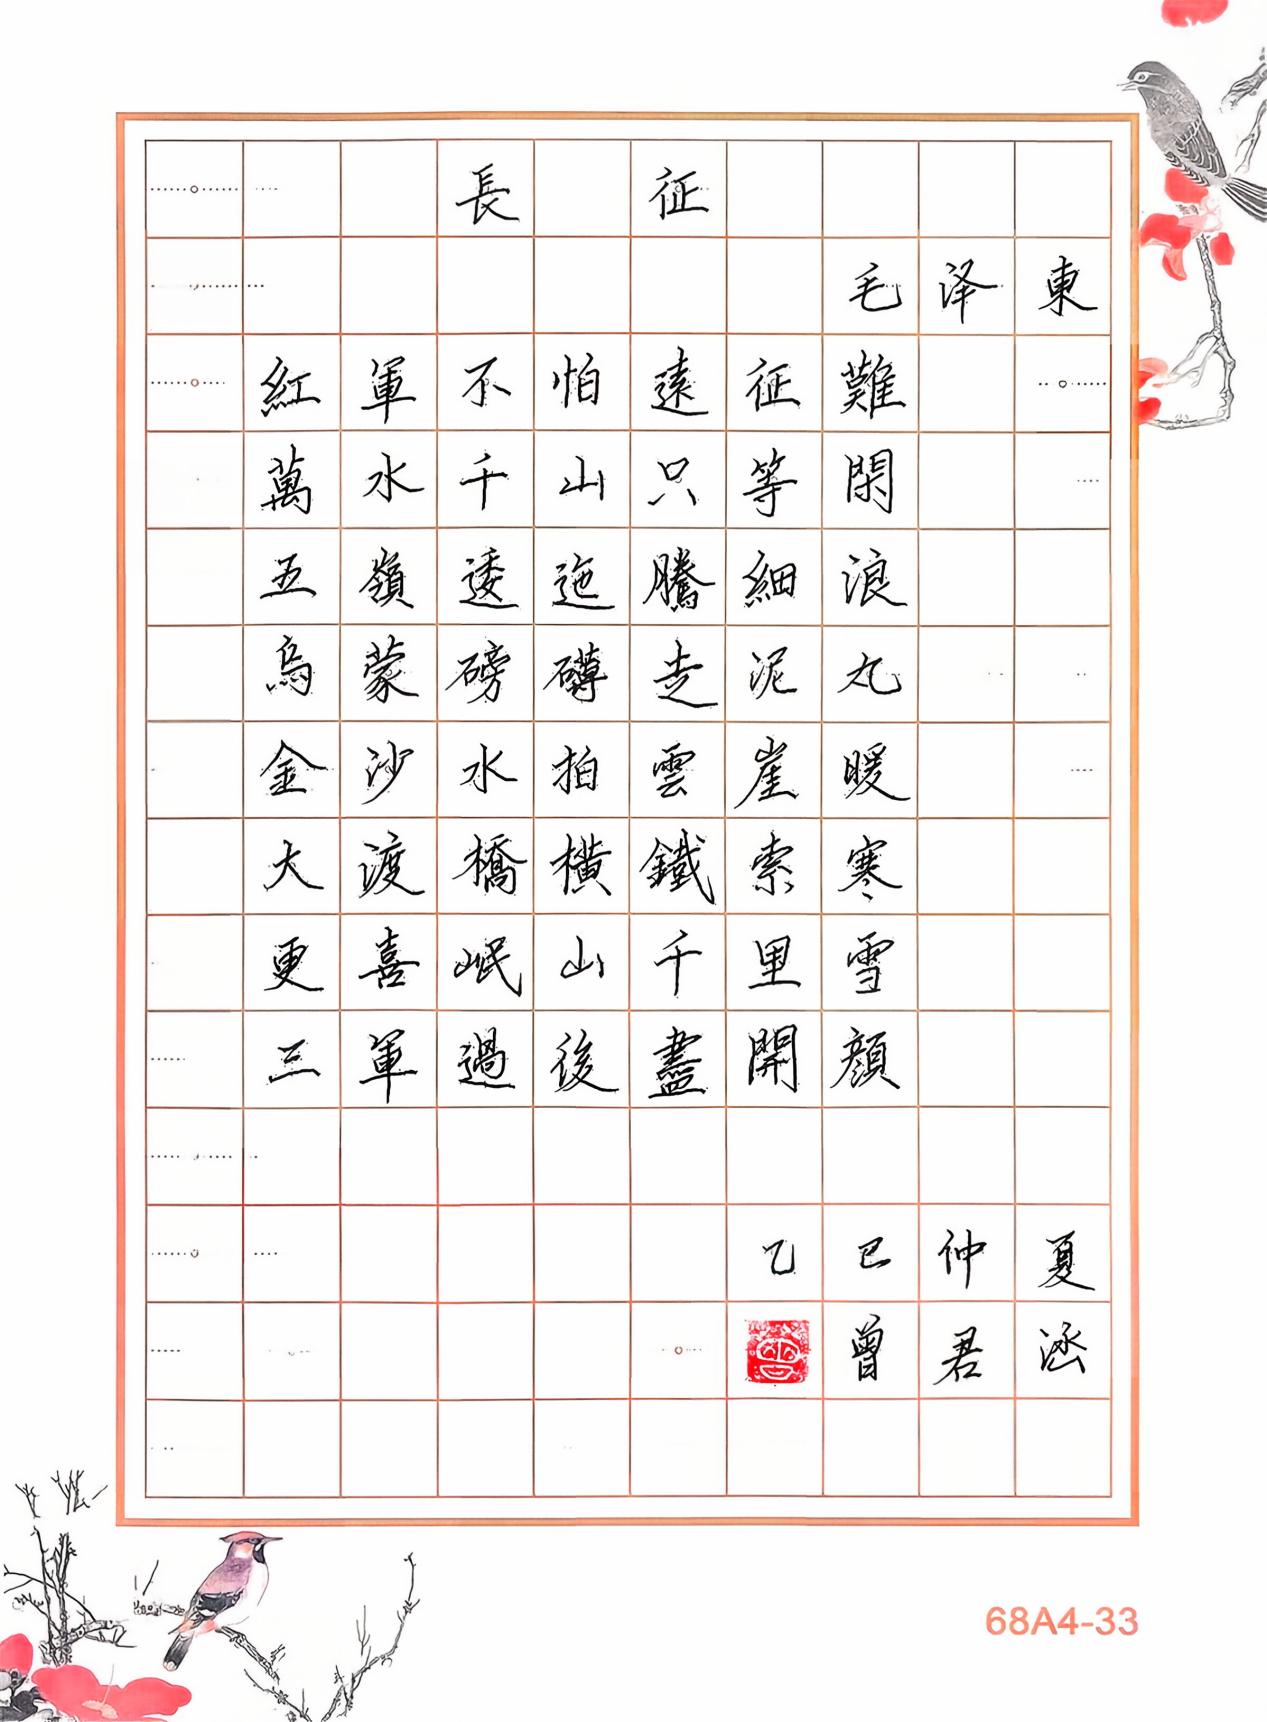 長征
毛泽東
紅軍不怕遠征難
萬水千山只等閑
五嶺逶迤騰細浪
烏蒙磅礴走泥丸
金沙水拍雲崖暖
大渡橋橫鐵索寒
更喜岷山千里雪
三軍過後盡開顏
乙巳仲夏
曾君涵
68A4-33